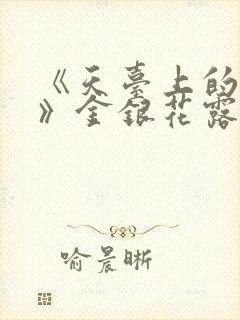 《天臺上的
》金銀花露
喻晨晰